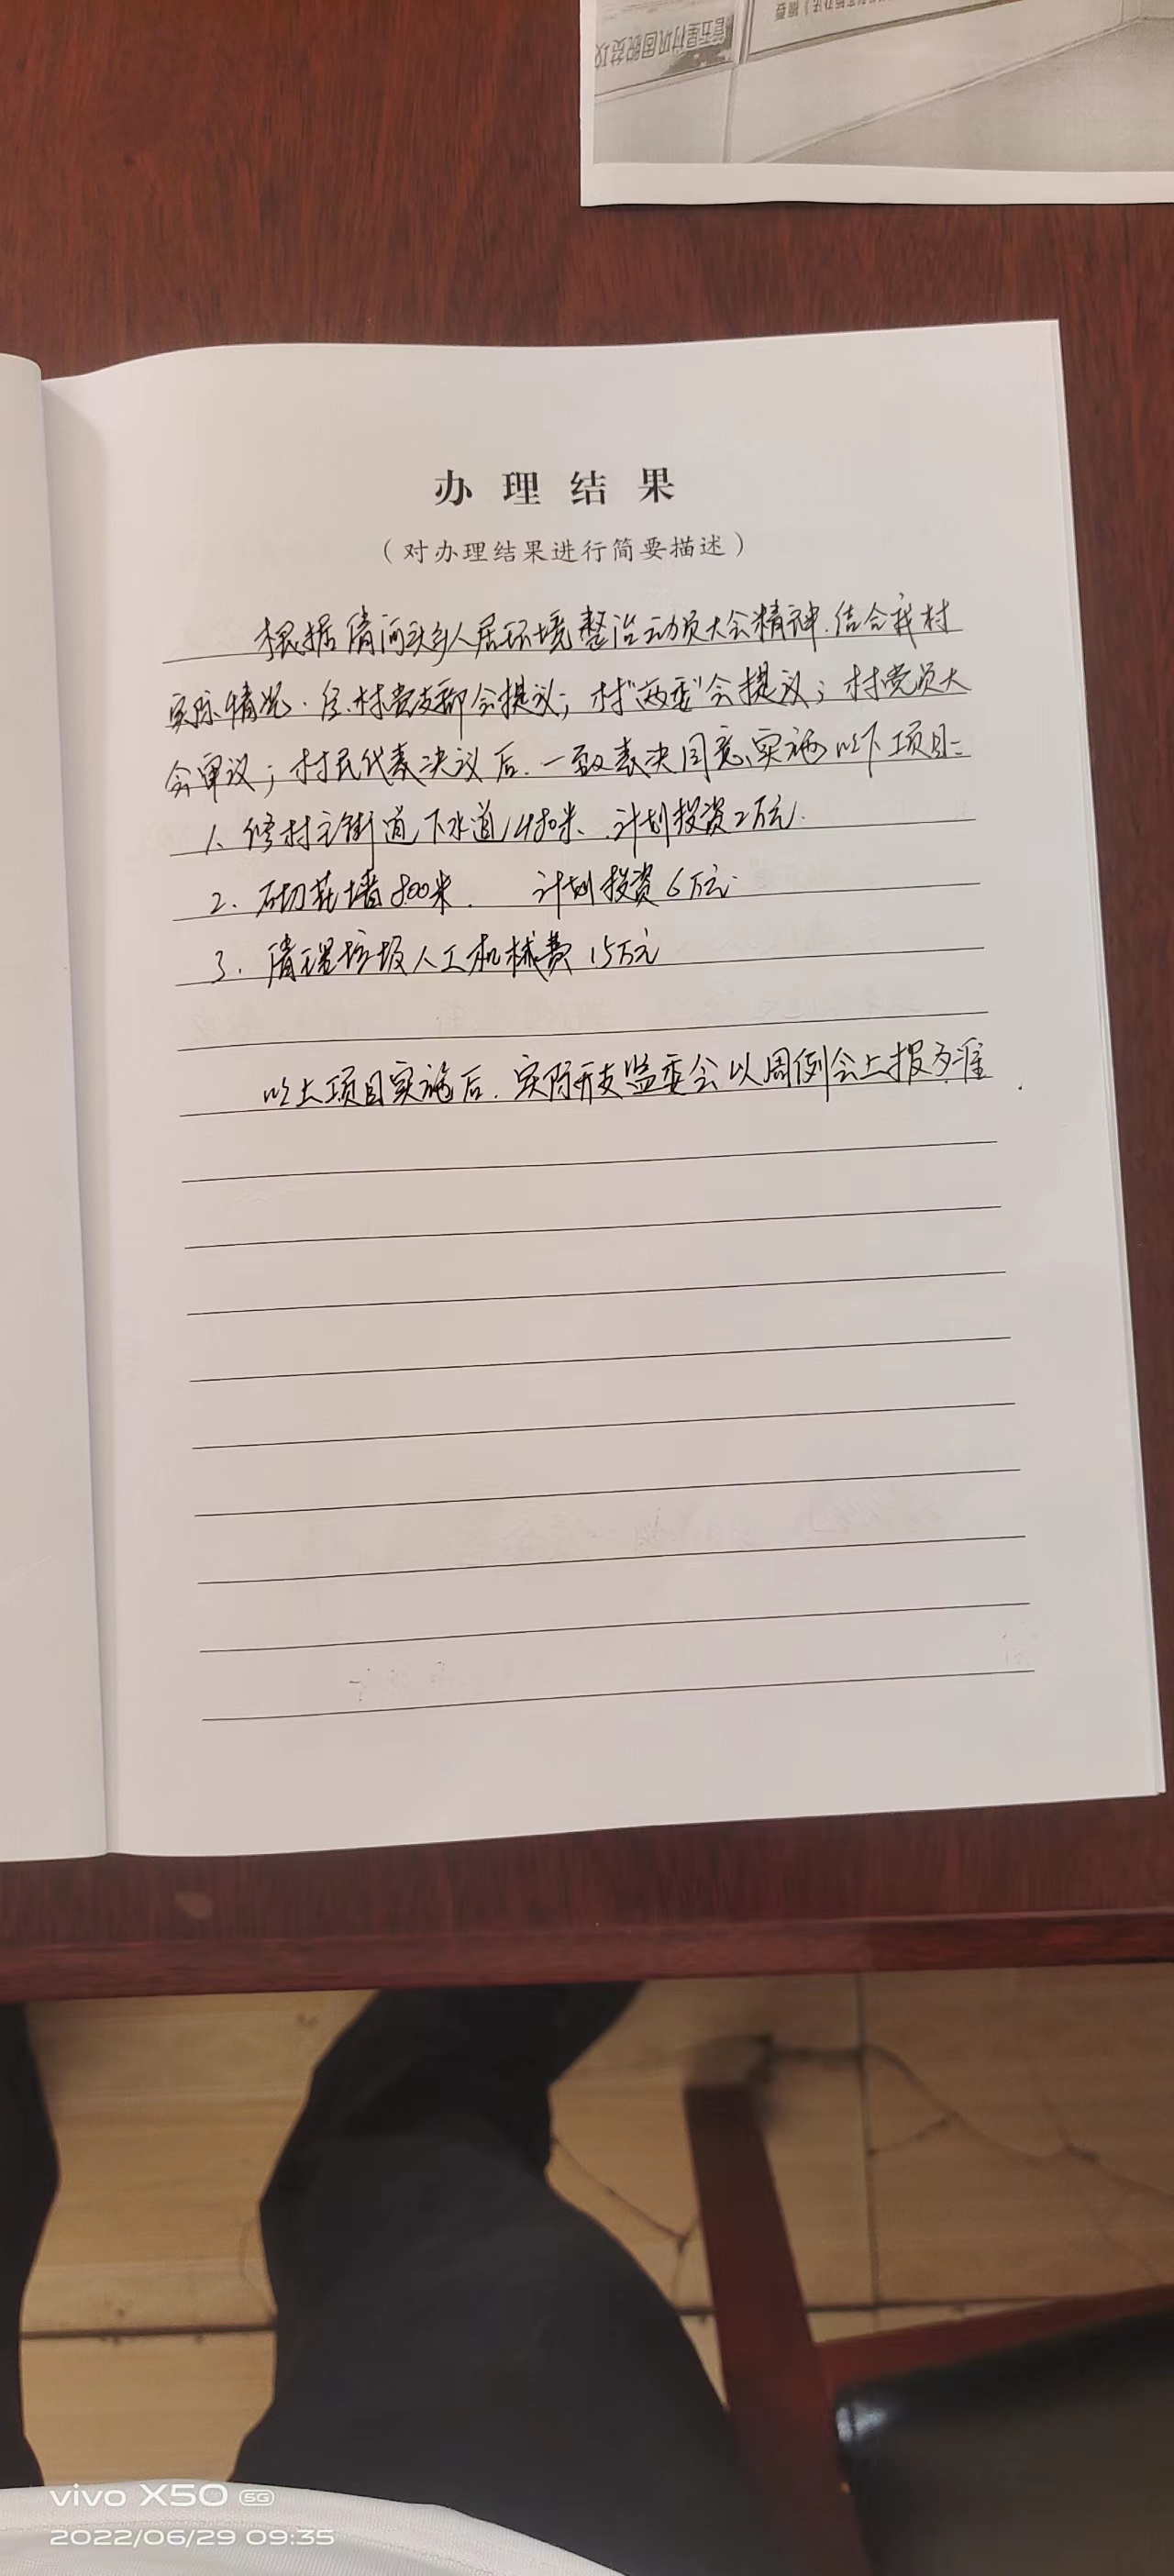 管五星村巩固脱贫攻
办理结果
（对办理结果进行简要描述）
根据清河头乡人居环境整治动员大会精神.结合我村
实际情况.经村党支部会提议；村"两委"会提议；村党员大
会审议；村民代表决议后.一致表决同意实施以下项目：
1、修村主街道下水道1480米、计划投资2万元.
2、砌花墙800米. 计划投资6万元.
3、清理垃圾人工机械费15万元
以上项目实施后.实际开支监委会以周例会上报为准.
vivo X50 5G
2022/06/29 09:35